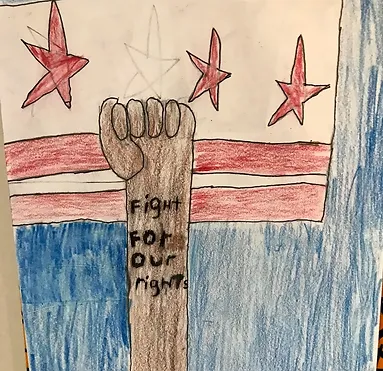 Fight
FOR
our
righTs